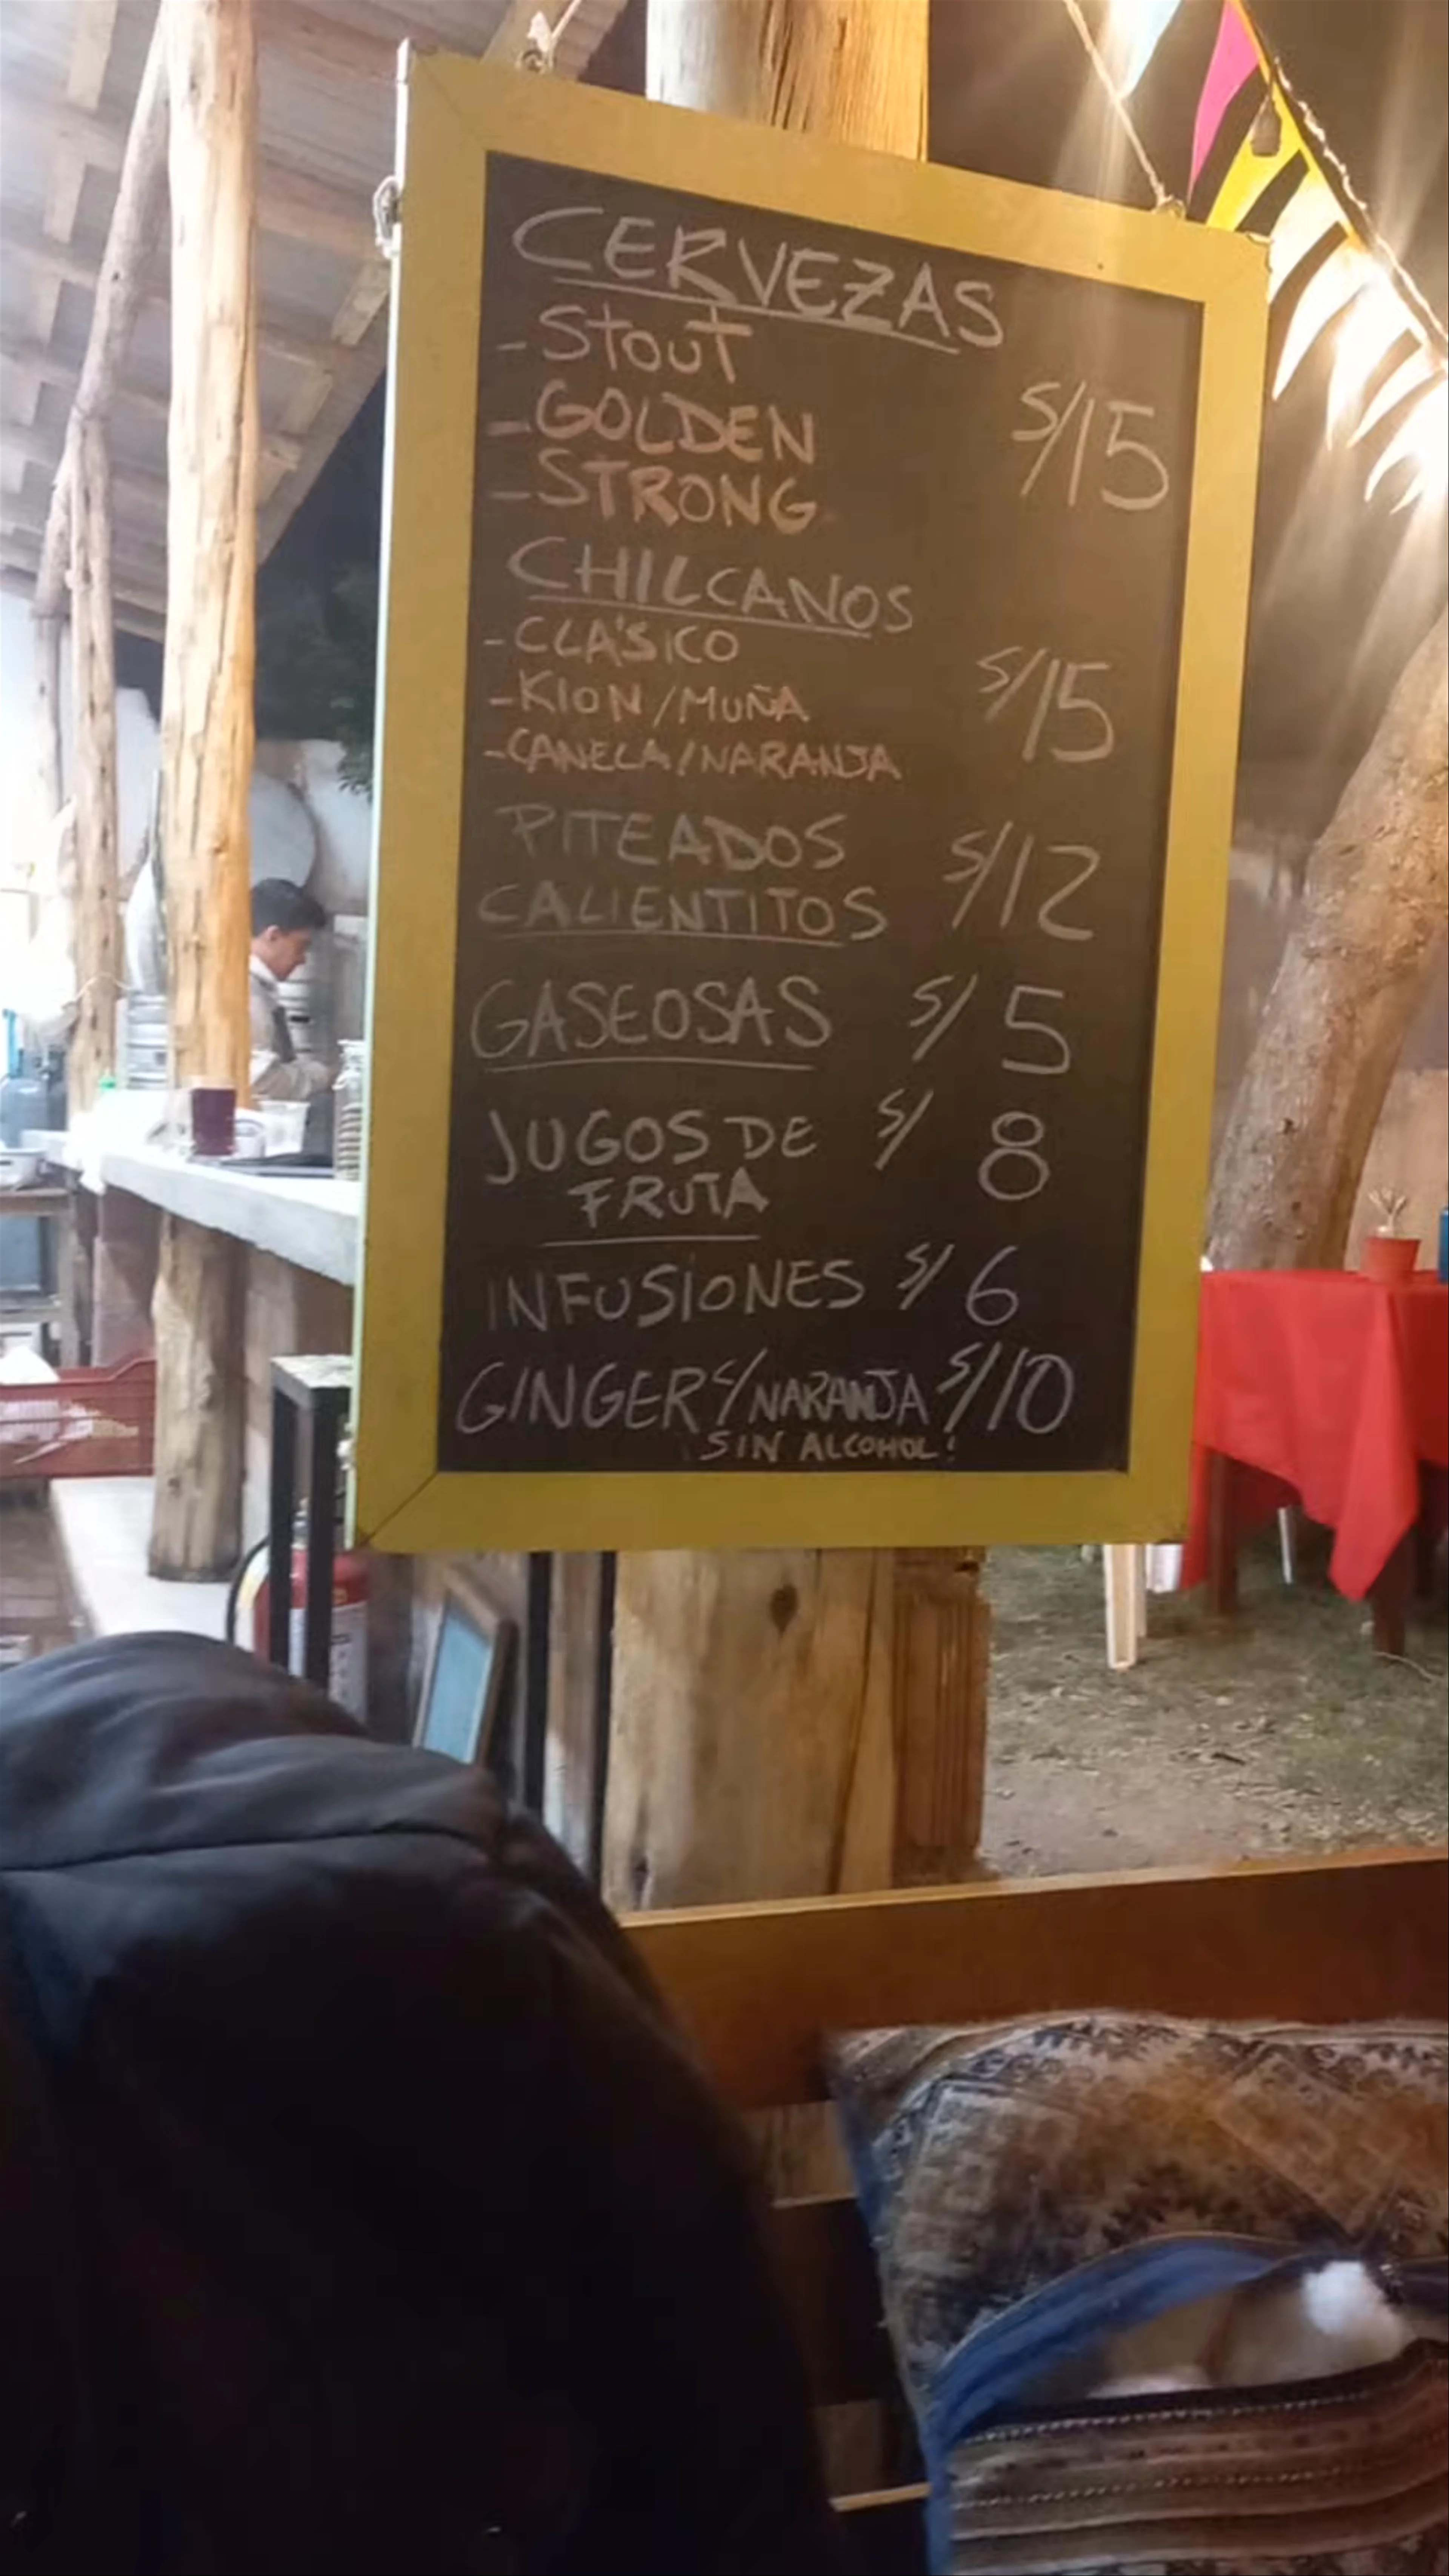 CERVEZAS
- Stout
- GOLDEN S/15
- STRONG
CHILCANOS
- CLÁSICO
- KION/MUÑA S/15
- CANELA/NARANJA
PITEADOS
CALIENTITOS S/12
GASEOSAS S/ 5
JUGOS DE S/ 8
FRUTA
INFUSIONES S/ 6
GINGER C/NARANJA S/10
¡SIN ALCOHOL!